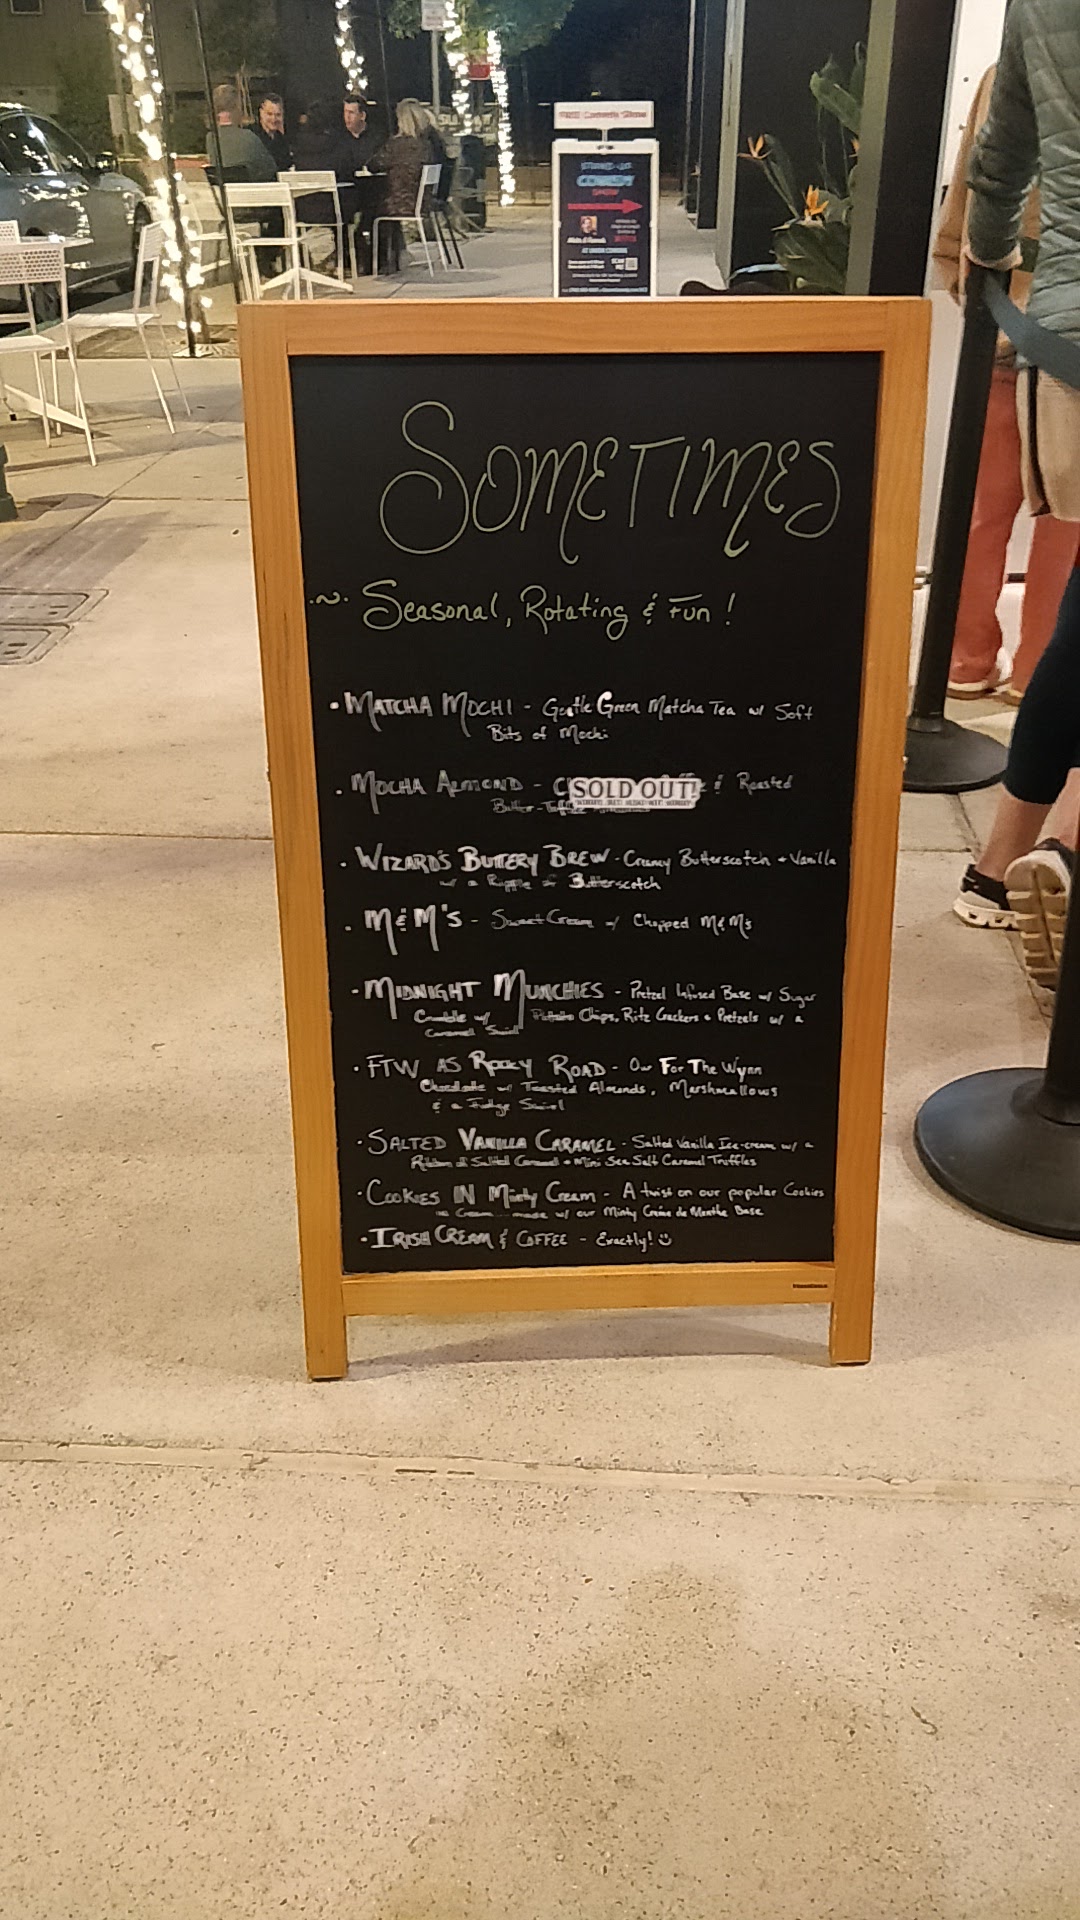 FREE Comedy Show
STAND-UP
COMEDY
SHOW
SOMETIMES
~ Seasonal, Rotating & Fun!
• MATCHA MOCHI - Gentle Green Matcha Tea w/ Soft
Bits of Mochi
• MOCHA ALMOND - SOLD OUT! & Roasted
Butter-Toffee
• WIZARD'S BUTTERY BREW - Creamy Butterscotch + Vanilla
w/ a Ripple of Butterscotch
• M&M'S - Sweet Cream w/ Chopped M&M's
• MIDNIGHT MUNCHIES - Pretzel Infused Base w/ Sugar
Crumble w/ Potato Chips, Ritz Crackers + Pretzels w/ a
Caramel Swirl
• FTW AS ROCKY ROAD - Our For The Wynn
Chocolate w/ Toasted Almonds, Marshmallows
& a Fudge Swirl
• SALTED VANILLA CARAMEL - Salted Vanilla Ice-cream w/ a
Ribbon of Salted Caramel + Mini Sea Salt Caramel Truffles
• COOKIES IN Minty Cream - A twist on our popular Cookies
in Cream made w/ our Minty Créme de Menthe Base
• IRISH CREAM & COFFEE - Exactly! ☺